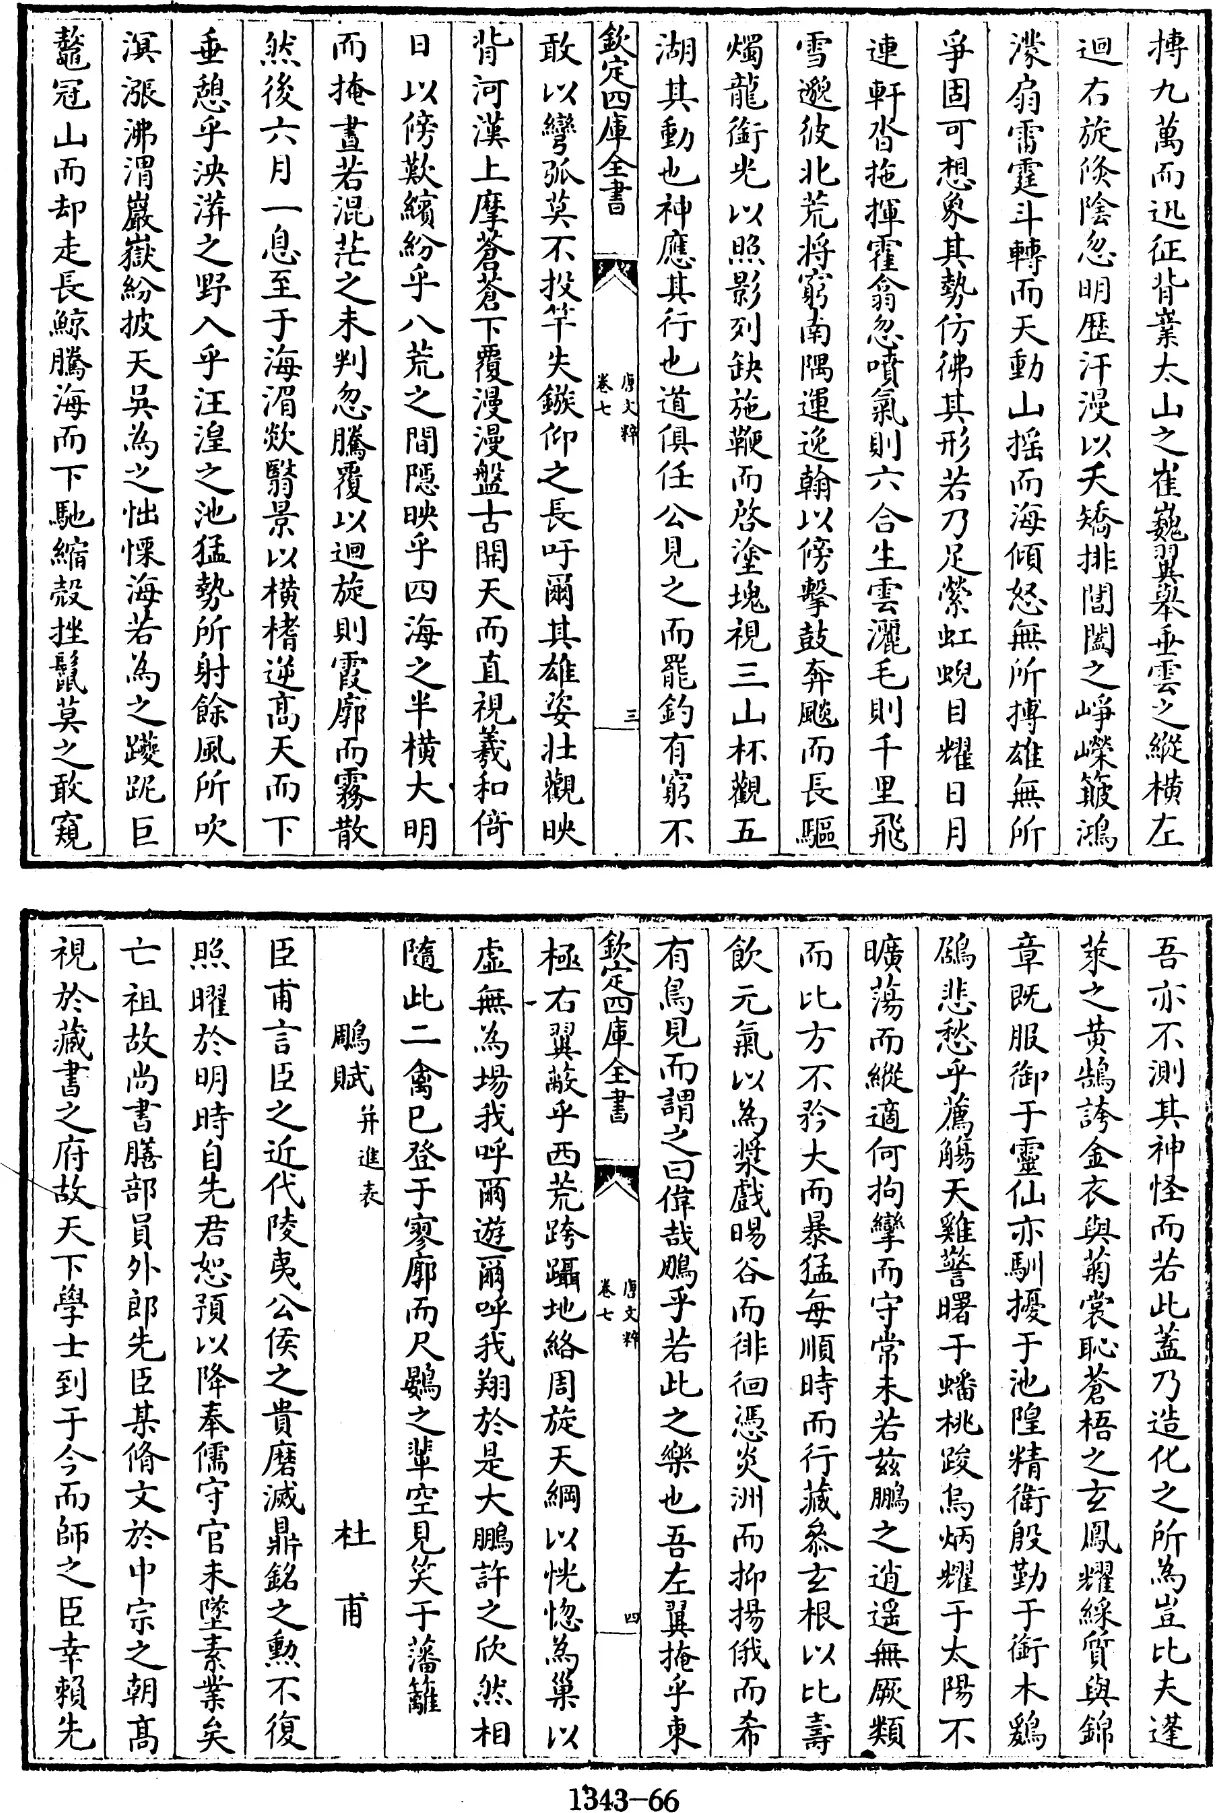 搏九萬而迅征背嶪太山之崔巍翼舉垂雲之縱横左
迴右旋倐隂忽明歴汗漫以夭矯排閶闔之峥嶸簸鴻
濛扇雷霆斗轉而天動山揺而海傾怒無所搏雄無所
爭固可想象其勢仿彿其形若乃足縈虹蜺目耀日月
連軒沓拖揮霍翕忽噴氣則六合生雲灑毛則千里飛
雪邈彼北荒将窮南隅運逸翰以傍擊鼓奔飈而長驅
燭龍銜光以照影列缺施鞭而啓塗塊視三山杯觀五
湖其動也神應其行也道俱任公見之而罷釣有窮不
欽定四庫全書
唐文粹
卷七
三
敢以彎弧莫不投竿失鏃仰之長吁爾其雄姿壯觀映
背河漢上摩蒼蒼下覆漫漫盤古開天而直視羲和倚
日以傍歎繽紛乎八荒之間隠映乎四海之半横大明
而掩晝若混茫之未判忽騰覆以迴旋則霞廓而霧散
然後六月一息至于海湄欻翳景以横楮逆髙天而下
垂憩乎泱漭之野入乎汪湟之池猛勢所射餘風所吹
溟漲沸渭巖嶽紛披天吳為之怵慄海若為之躨跜巨
鼇冠山而却走長鯨騰海而下馳縮殻挫鬛莫之敢窺
吾亦不測其神怪而若此蓋乃造化之所為豈比夫蓬
萊之黄鵠誇金衣與菊裳恥蒼梧之玄鳳耀綵質與錦
章既服御于靈仙亦馴擾于池隍精衛殷勤于銜木鶢
鶋悲愁乎薦觴天雞警曙于蟠桃踆烏炳耀于太陽不
曠蕩而縱適何拘攣而守常未若兹鵬之逍遥無厥類
而比方不矜大而暴猛每順時而行藏叅玄根以比夀
飲元氣以為漿戯暘谷而徘徊憑炎洲而抑揚俄而希
有鳥見而謂之曰偉哉鵬乎若此之樂也吾左翼掩乎東
欽定四庫全書
唐文粹
卷七
四
極右翼蔽乎西荒跨躡地絡周旋天綱以恍惚為巢以
虛無為場我呼爾遊爾呼我翔於是大鵬許之欣然相
隨此二禽已登于寥廓而尺鷃之輩空見笑于藩籬
鵰賦并進表
杜甫
臣甫言臣之近代陵夷公侯之貴磨滅鼎銘之勲不復
照曜於明時自先君恕預以降奉儒守官未墜素業矣
亡祖故尚書膳部員外郎先臣某脩文於中宗之朝髙
視於藏書之府故天下學士到于今而師之臣幸賴先
1343-66